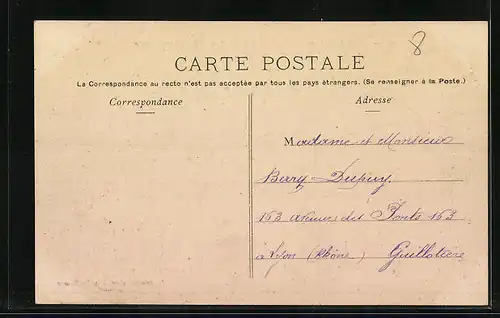 8
CARTE POSTALE
La Correspondance au recto n'est pas acceptée par tous les pays étrangers. (Se renseigner à la Poste.)
Correspondance
Adresse
Madame et Monsieur
Berry-Dupuy
163 avenue des Ponts 163
à Lyon (Rhône) Guillotière